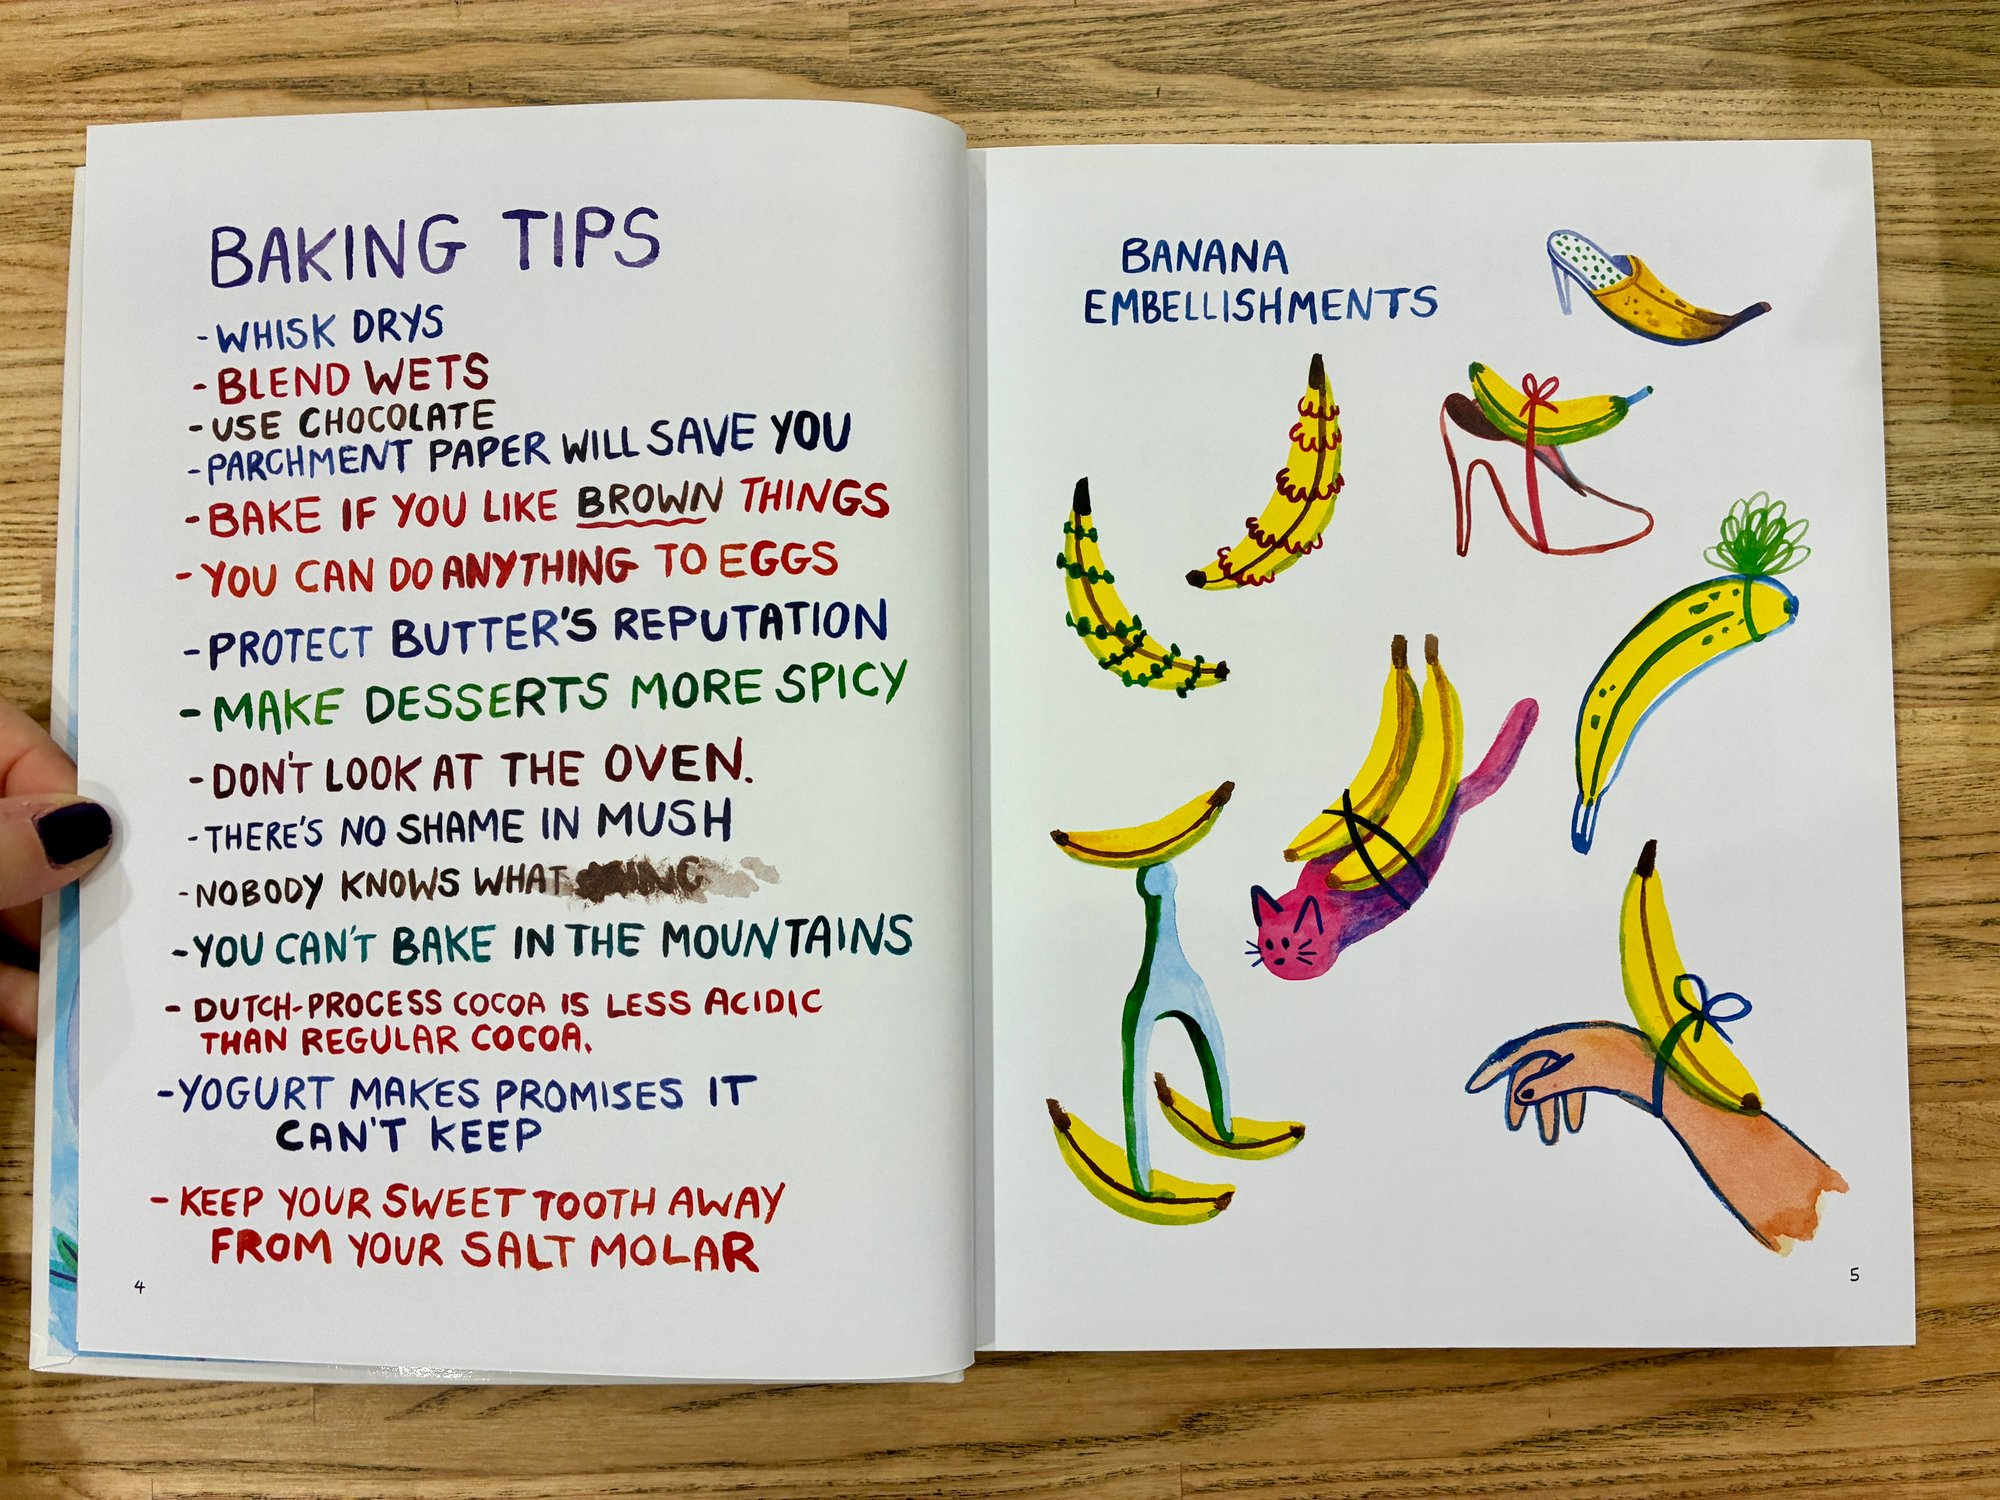 BAKING TIPS
- WHISK DRYS
- BLEND WETS
- USE CHOCOLATE
- PARCHMENT PAPER WILL SAVE YOU
- BAKE IF YOU LIKE BROWN THINGS
- YOU CAN DO ANYTHING TO EGGS
- PROTECT BUTTER'S REPUTATION
- MAKE DESSERTS MORE SPICY
- DON'T LOOK AT THE OVEN.
- THERE'S NO SHAME IN MUSH
- NOBODY KNOWS WHAT
- YOU CAN'T BAKE IN THE MOUNTAINS
- DUTCH-PROCESS COCOA IS LESS ACIDIC
THAN REGULAR COCOA.
- YOGURT MAKES PROMISES IT
CAN'T KEEP
- KEEP YOUR SWEET TOOTH AWAY
FROM YOUR SALT MOLAR
4
BANANA
EMBELLISHMENTS
5